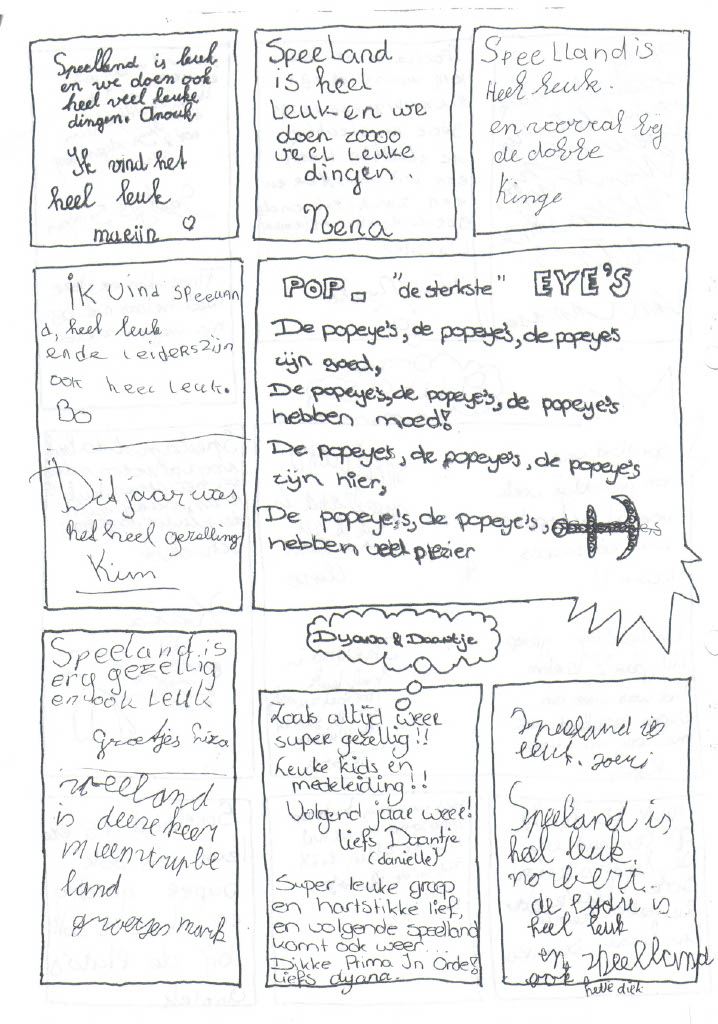 Speelland is leuk
en we doen ook
heel veel leuke
dingen. Anouk
Ik vind het
heel leuk
marijn
SpeeLand
is heel
Leuk en we
doen zoooo
veel Leuke
dingen.
Nena
SpeeLland is
Heel leuk.
en vooral bij
de dokke
Kinge
iK vind speellan
d, heel leuk
en de Leiders zijn
ook heel leuk.
Bo
Dit jaar was
het heel gezelling
Kim
POP. "de sterkste" EYE'S
De popeye's, de popeye's, de popeye's
zijn goed,
De popeye's, de popeye's, de popeye's
hebben moed!
De popeye's, de popeye's, de popeye's
zijn hier,
De popeye's, de popeye's,
hebben veel plezier
Dyana & Daantje
Speeland is
erg gezellig
en ook Leuk
groetjes Liza
is deze keer
land
groetjes mark
Zoals altijd weer
super gezellig!!
Leuke kids en
medeleiding!!
Volgend jaar weer!
liefs Daantje
(danielle)
Super leuke groep
en hartstikke lief,
en volgende speelland
komt ook weer...
Dikke Prima In Orde!
liefs dyana..
Speeland is
leuk. Joeri
Speeland is
heel leuk.
norbert.
is
heel leuk
en speelland
ook